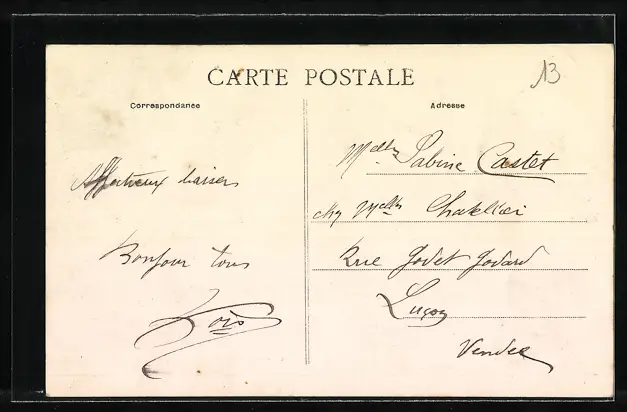 CARTE POSTALE
13
Correspondance
Adresse
Affectueux baisers
Bonjour tous
Melle Sabine Castet
chez Melle
Rue Godet
Luçon
Vendée